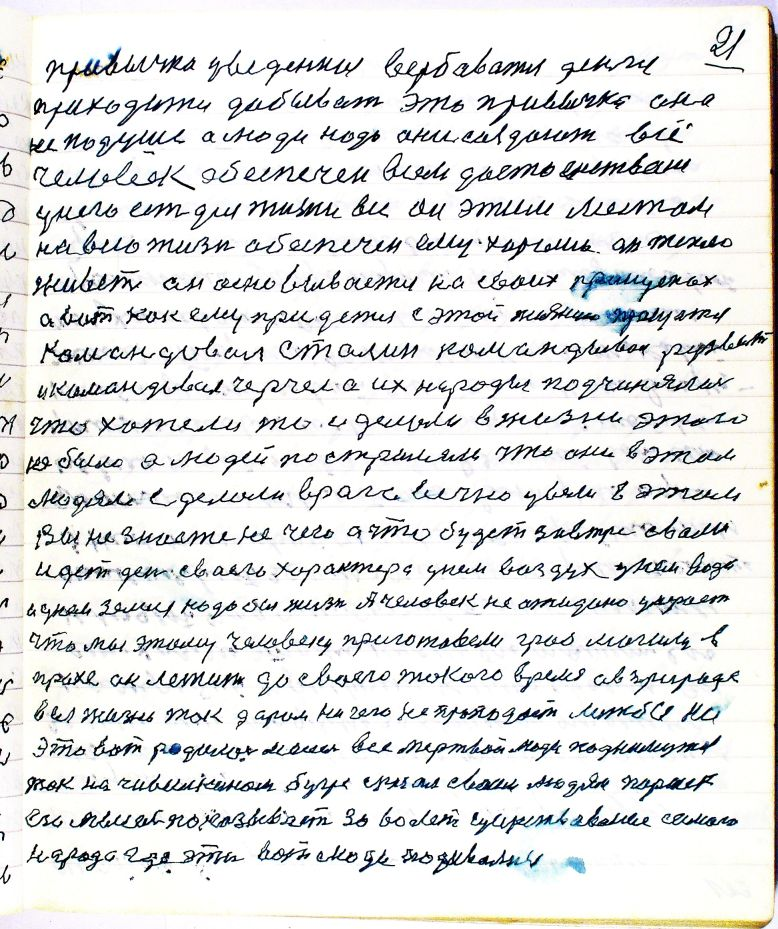 21
привычка уведенния вербавати денги
приходити добыват это привычка она
не подуше а люди надо они создают всё
человек обеспечен всем достоинствам
унего ест для жизни все он этим местом
на всю жизн обеспечен ему хорошо он тепло
живёт он основывается на своих
а вот как ему придется с этой жизни
командовал Сталин командывал
и командовал черчел а их народы подчинялис
что хотели то и делали в жизни этого
не было а людей постреляли что они в этом
людям сделали врага вечно увели в этом
Вы не знаете не чего а что будет завтра снами
идет ден своего характера унем воздух унем вода
и унем земля надо бы жизн А человек не ожидано умрает
что мы этому человеку приготовели гроб могилу в
прахе он лежит до своего такого время а в природе
вся жизнь так даром ничего не пропадает
это вот родилос все мертвой люди поднимутся
так на чивилкином бугре сказал своим людям паршек
за волет существование самого
народа где эти вот люди подевались